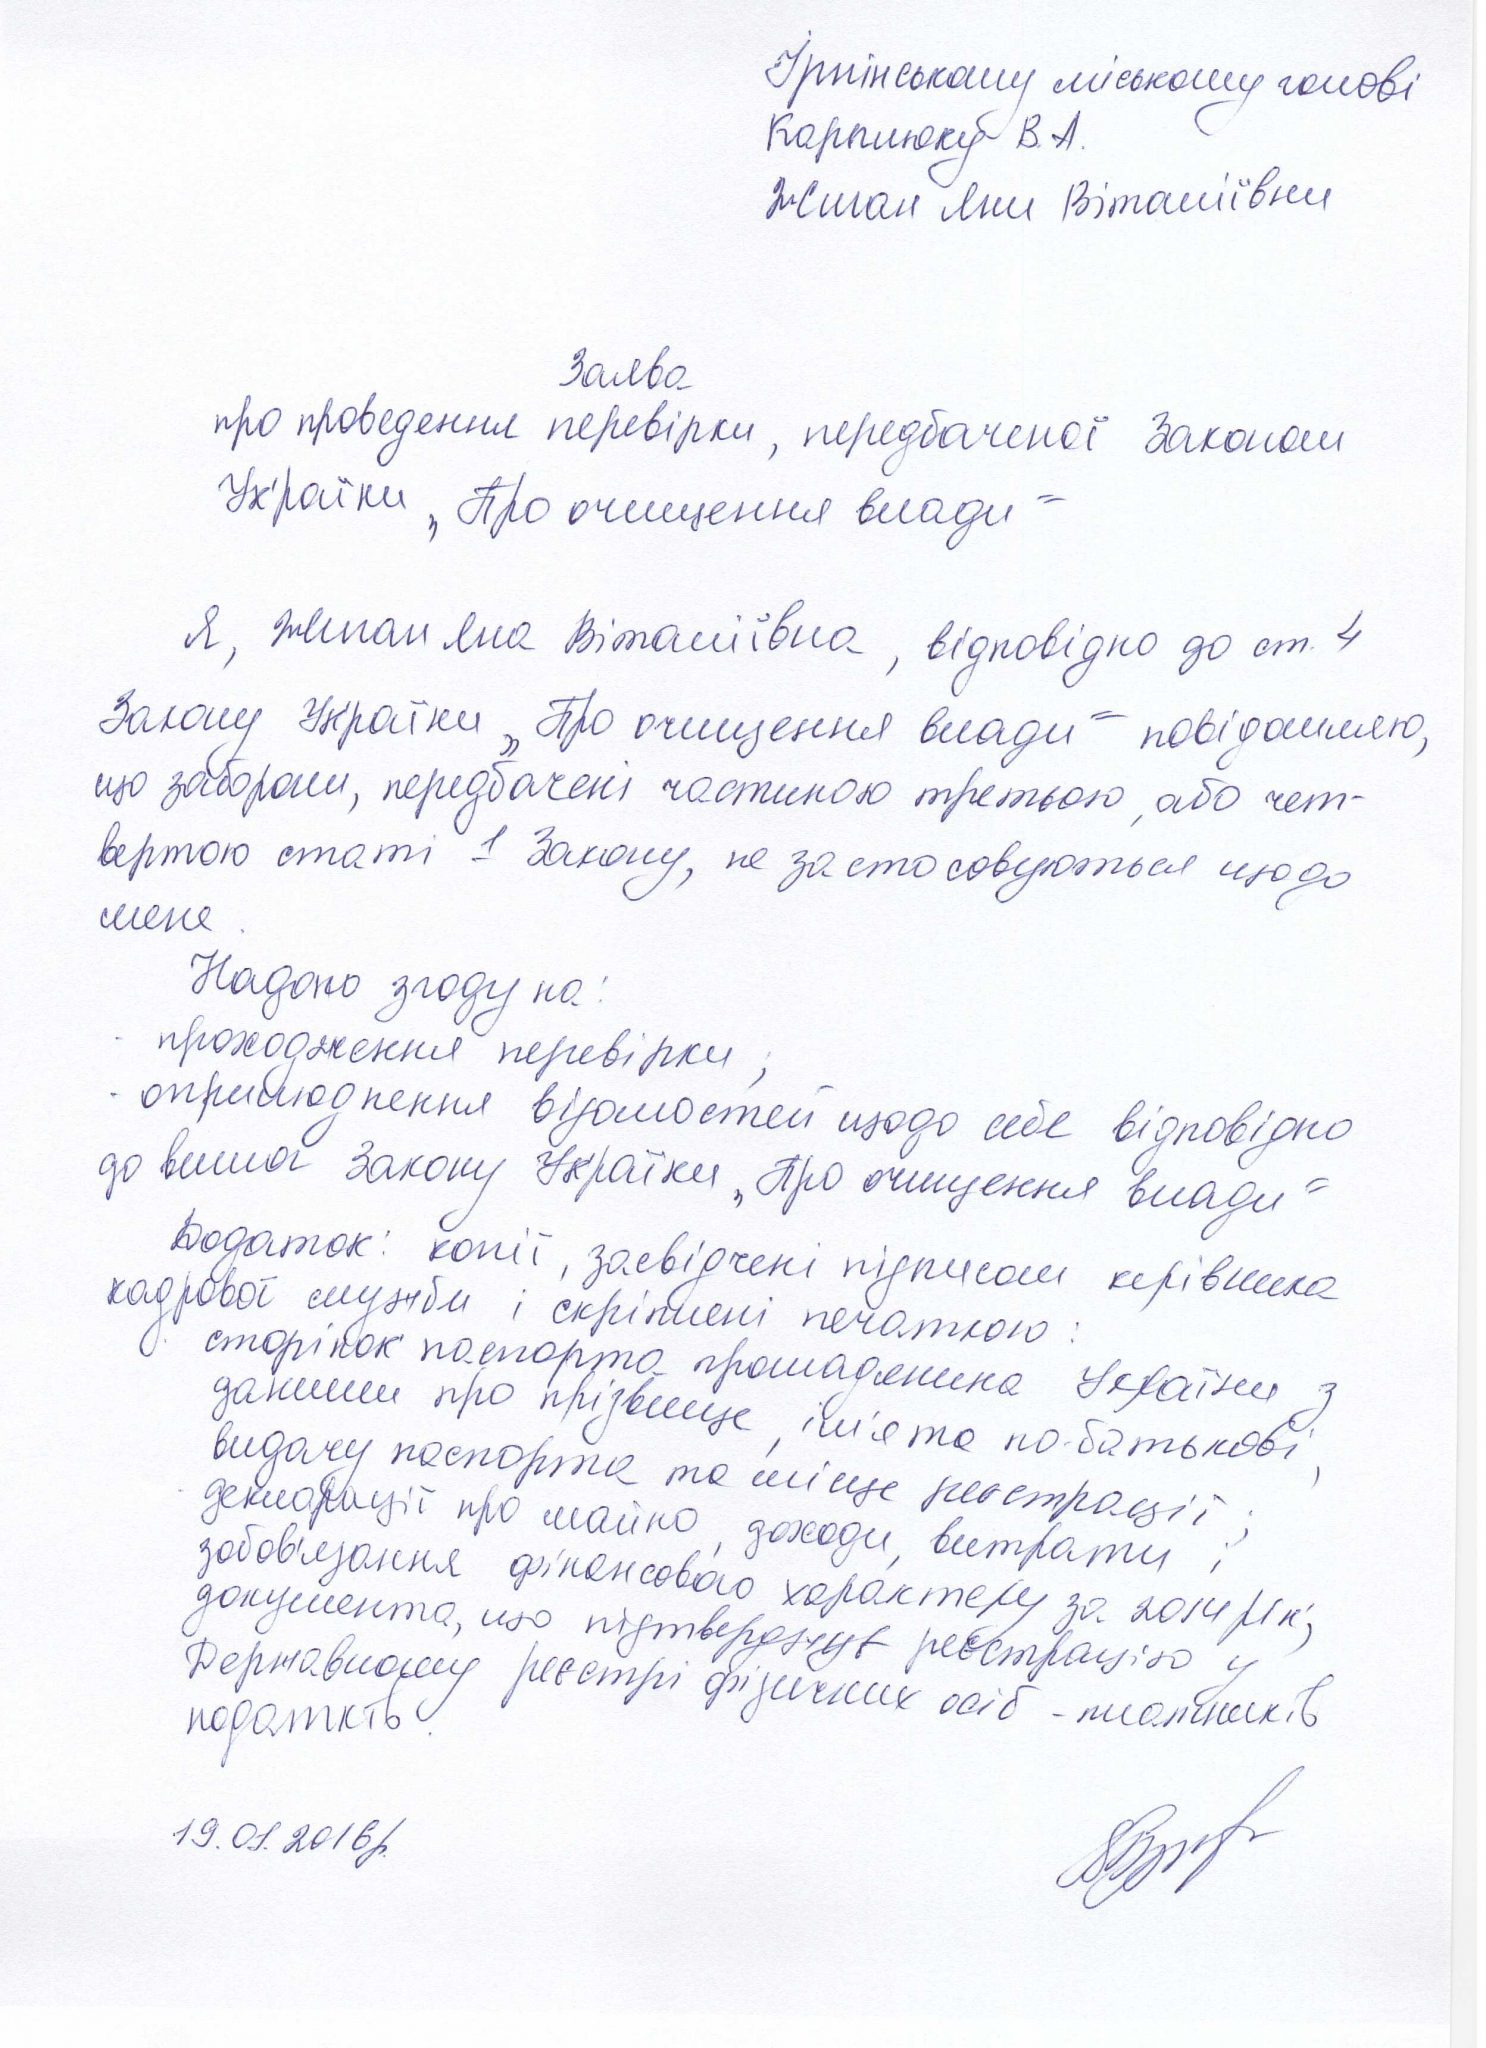 Ірпінському міському голові
Карплюку В.А.
Жиган Яни Віталіївни
Заява
про проведення перевірки, передбаченої Законом
України „Про очищення влади"
Я, Жиган Яна Віталіївна, відповідно до ст. 4
Закону України „Про очищення влади" повідомляю,
що заборони, передбачені частиною третьою, або чет-
вертою статі 1 Закону, не застосовуються щодо
мене.
Надаю згоду на:
- проходження перевірки;
- оприлюднення відомостей щодо себе відповідно
до вимог Закону України „Про очищення влади"
Додаток: копії, засвідчені підписом керівника
кадрової служби і скріплені печаткою:
- сторінок паспорта громадянина України з
даними про прізвище, ім'я та по-батькові,
видачу паспорта та місце реєстрації;
- декларації про майно, доходи, витрати і
зобов'язання фінансового характеру за 2014 рік;
документа, що підтверджує реєстрацію у
Державному реєстрі фізичних осіб - платників
податків.
19.01.2016р.